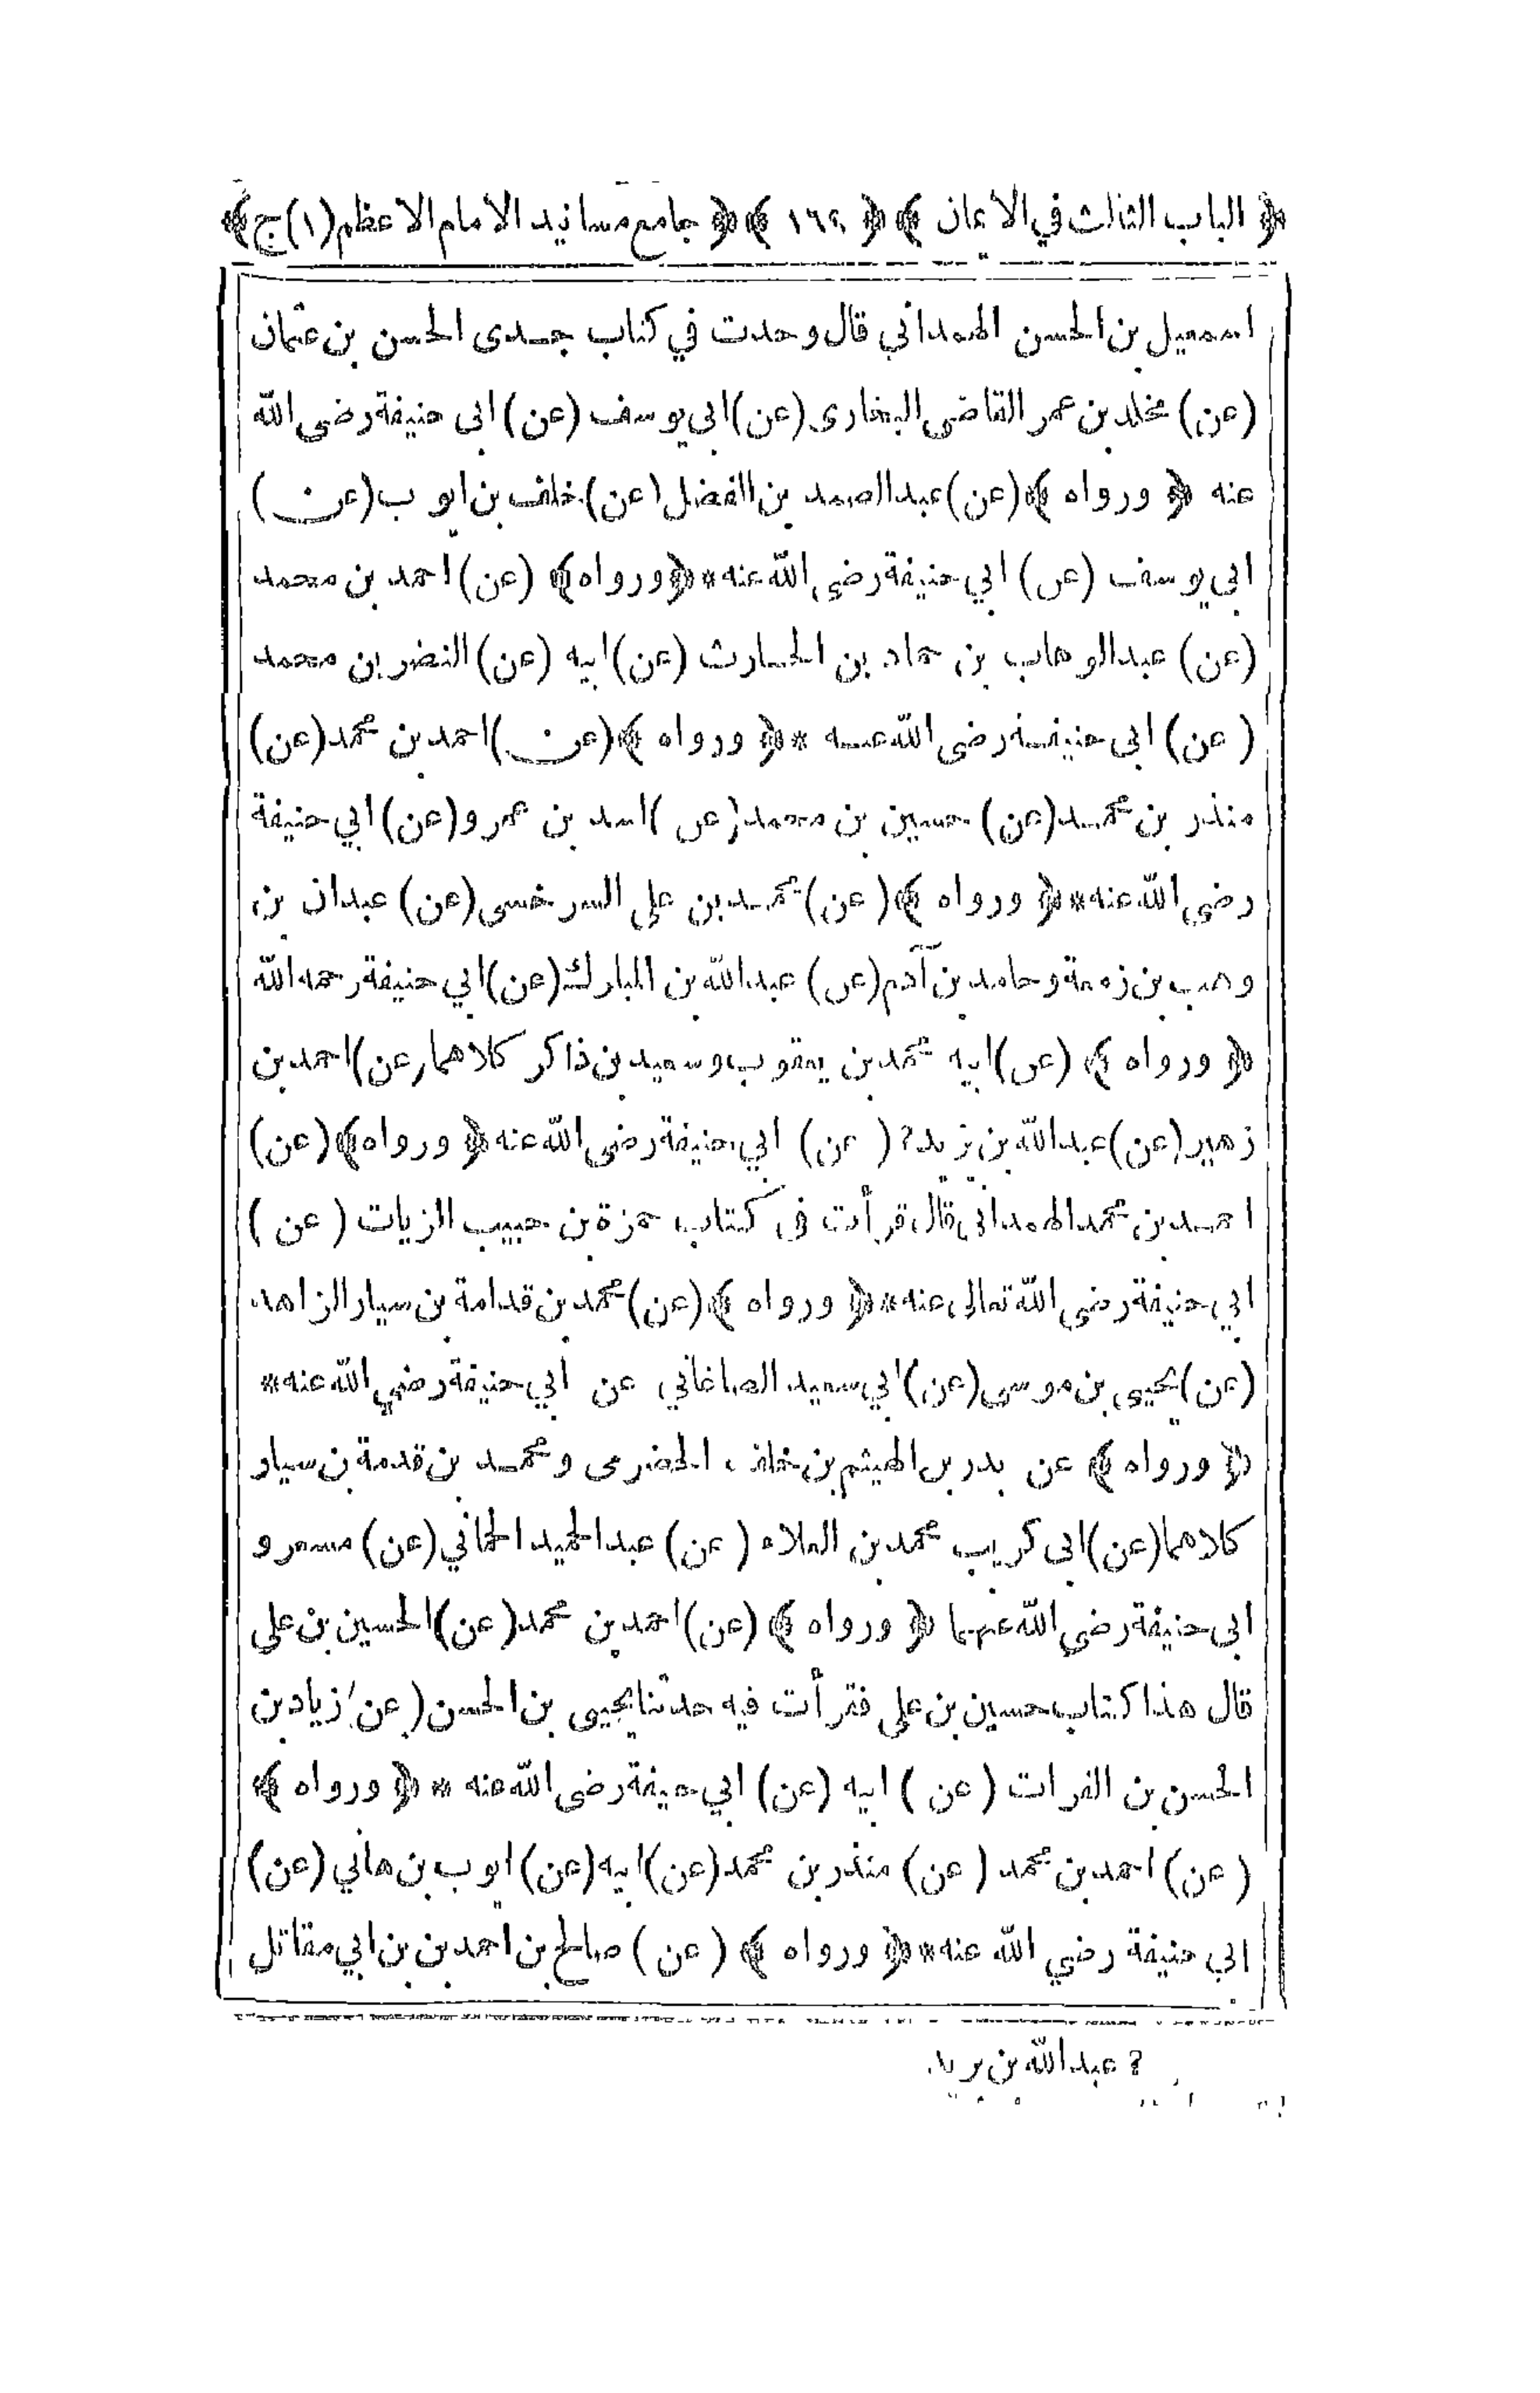 ﴿ الباب الثالث في الايمان ﴾ ﴿ ١٦٩ ﴾ ﴿ جامع مسانيد الامام الاعظم (١) ج ﴾
اسمعيل بن الحسن الهمداني قال وجدت في كتاب جدى الحسن بن عثمان
(عن) مخلد بن عمر القاضى البخارى (عن) ابي يوسف (عن) ابى حنيفة رضى الله
عنه ﴿ ورواه ﴾ (عن) عبد الصمد بن الفضل (عن) خلف بن ايوب (عن)
ابى يوسف (عن) ابي حنيفة رضى الله عنه * ﴿ ورواه ﴾ (عن) احمد بن محمد
(عن) عبد الوهاب بن حماد بن الحارث (عن) ابيه (عن) النضر بن محمد
(عن) ابى حنيفة رضى الله عنه * ﴿ ورواه ﴾ (عن) احمد بن محمد (عن)
منذر بن محمد (عن) حسين بن محمد (عن) اسد بن عمرو (عن) ابي حنيفة
رضى الله عنه * ﴿ ورواه ﴾ (عن) محمد بن على السرخسى (عن) عبدان بن
وهب بن زمعة وحامد بن آدم (عن) عبد الله بن المبارك (عن) ابي حنيفة رحمه الله
﴿ ورواه ﴾ (عن) ابيه محمد بن يعقوب وسعيد بن ذاكر كلاهما (عن) احمد بن
زهير (عن) عبد الله بن يزيد ? (عن) ابي حنيفة رضى الله عنه ﴿ ورواه ﴾ (عن)
احمد بن محمد الهمدانى قال قرأت فى كتاب حمزة بن حبيب الزيات (عن)
ابي حنيفة رضى الله تعالى عنه * ﴿ ورواه ﴾ (عن) محمد بن قدامة بن سيار الزاهد
(عن) يحيى بن موسى (عن) ابي سعيد الصاغاني عن ابي حنيفة رضي الله عنه *
﴿ ورواه ﴾ عن بدر بن الهيثم بن خلف الحضرمى ومحمد بن قدمة بن سيار
كلاهما (عن) ابى كريب محمد بن العلاء (عن) عبد الحميد الحماني (عن) مسعر و
ابى حنيفة رضى الله عنهما ﴿ ورواه ﴾ (عن) احمد بن محمد (عن) الحسين بن على
قال هذا كتاب حسين بن على فقرأت فيه حدثنا يحيى بن الحسن (عن) زياد بن
الحسن بن الفرات (عن) ابيه (عن) ابي حنيفة رضى الله عنه * ﴿ ورواه ﴾
(عن) احمد بن محمد (عن) منذر بن محمد (عن) ابيه (عن) ايوب بن هاني (عن)
ابي حنيفة رضي الله عنه * ﴿ ورواه ﴾ (عن) صالح بن احمد بن بن ابي مقاتل
? عبد الله بن بريد